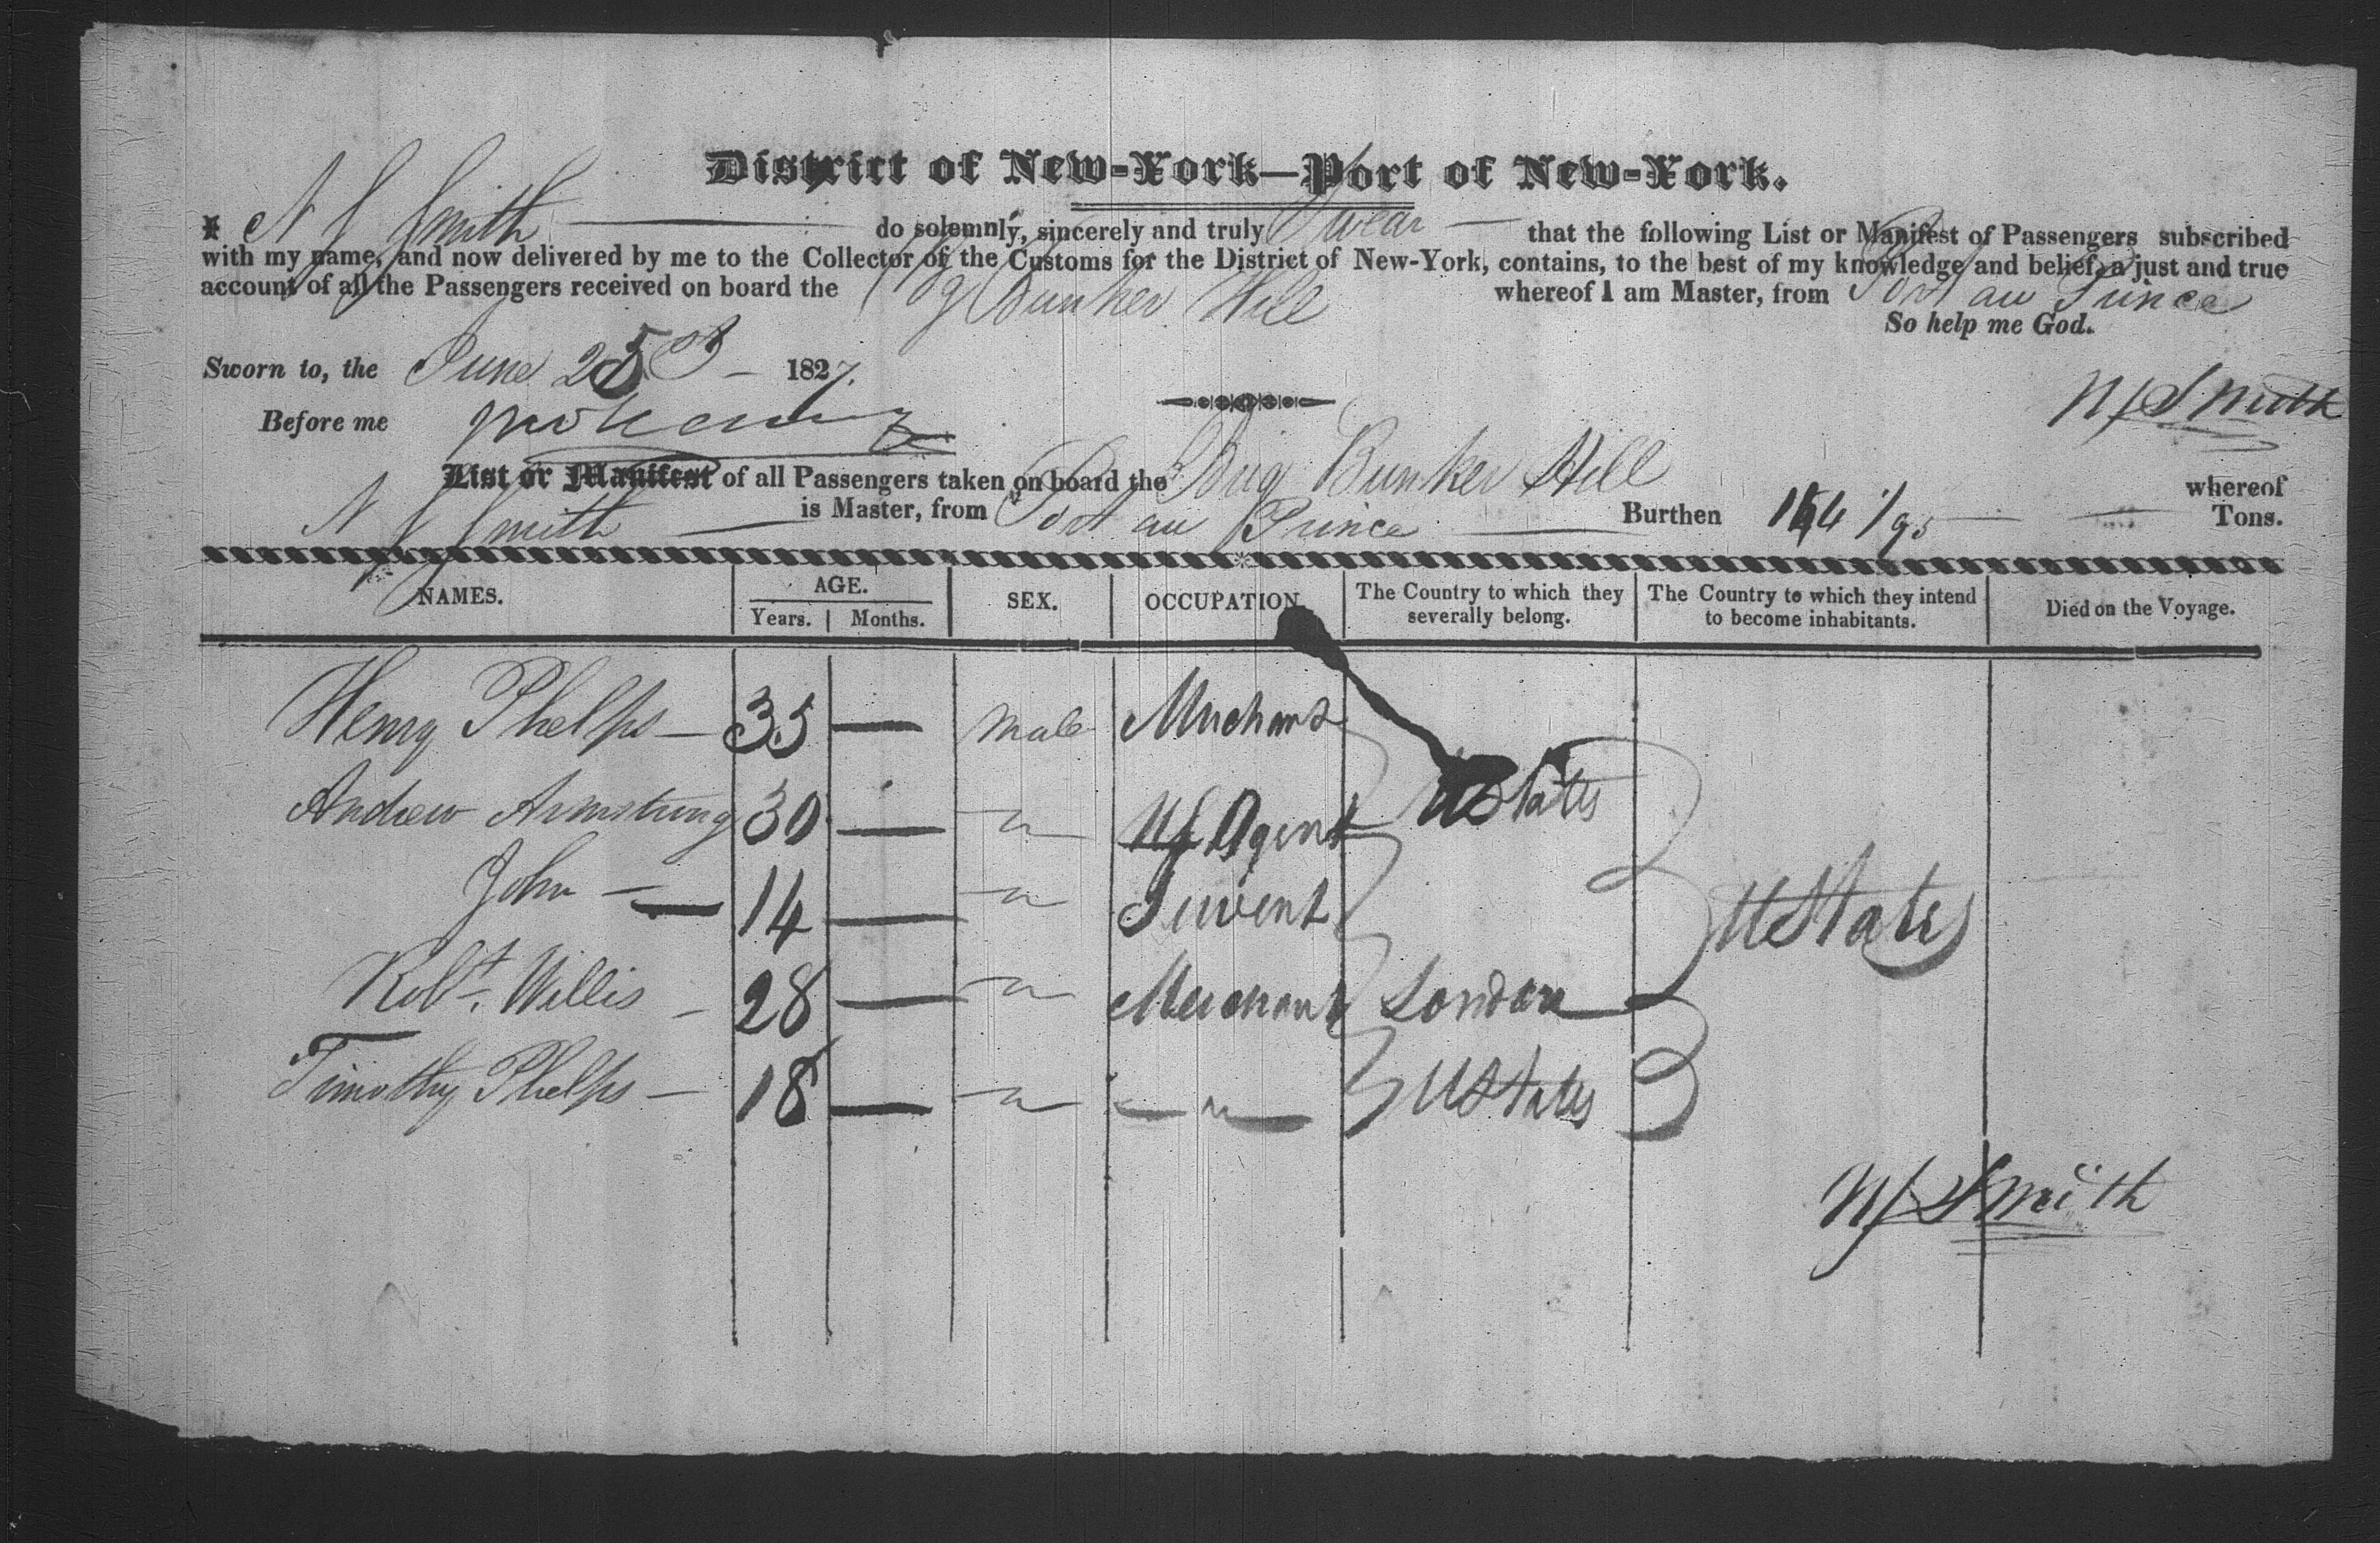 District of New-York—Port of New-York.
I N J Smith do solemnly, sincerely and truly Swear that the following List or Manifest of Passengers subscribed
with my name, and now delivered by me to the Collector of the Customs for the District of New-York, contains, to the best of my knowledge and belief, a just and true
account of all the Passengers received on board the Brig Bunker Hill whereof I am Master, from Port au Prince
So help me God.
Sworn to, the June 25 1827.
N J Smith
Before me
List or Manifest of all Passengers taken on board the Brig Bunker Hill whereof
N J Smith is Master, from Port au Prince Burthen 164 1/95 Tons.
NAMES. AGE. Years. Months. SEX. OCCUPATION. The Country to which they severally belong. The Country to which they intend to become inhabitants. Died on the Voyage.
Henry Phelps — 35 — Male Merchant
Andrew Armstrong 30 — " Agent U States
John — 14 — " Servent
U States
Robt. Willis — 28 — " Merchant London
Timothy Phelps — 18 — " — " — U States
N J Smith